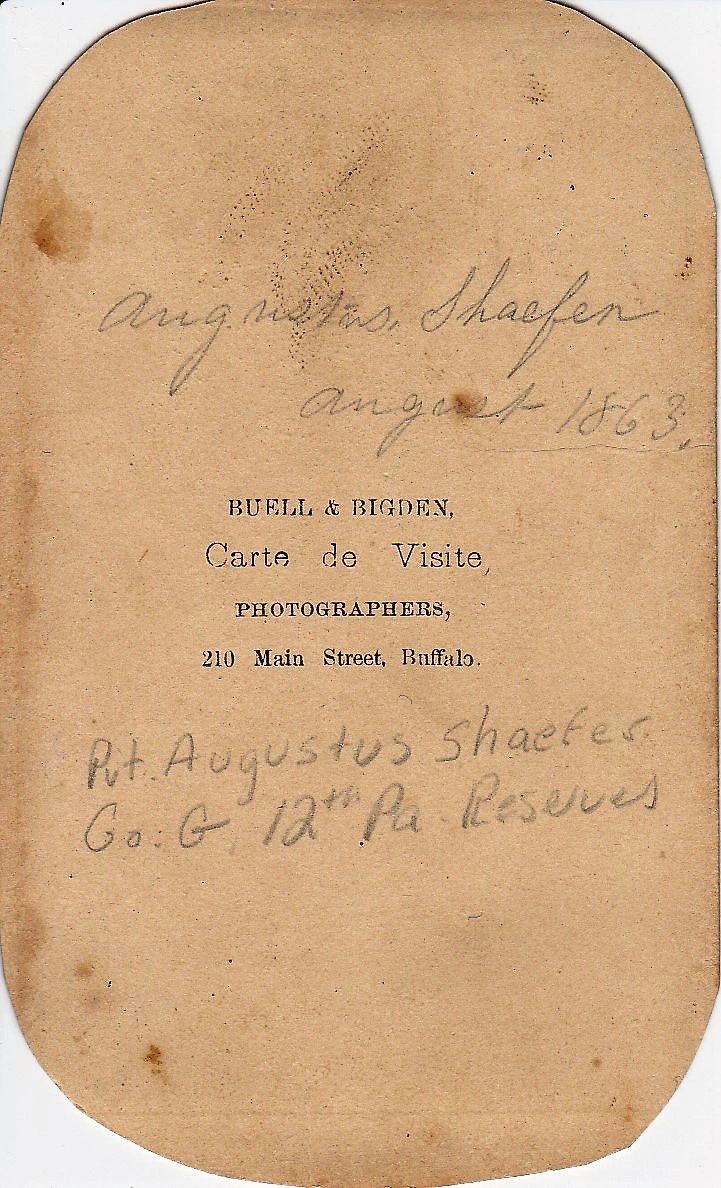 Augustus, Shaefer
August 1863.
BUELL & BIGDEN,
Carte de Visite,
PHOTOGRAPHERS,
210 Main Street, Buffalo.
Pvt. Augustus Shaefer
Co. G. 12th Pa. Reserves